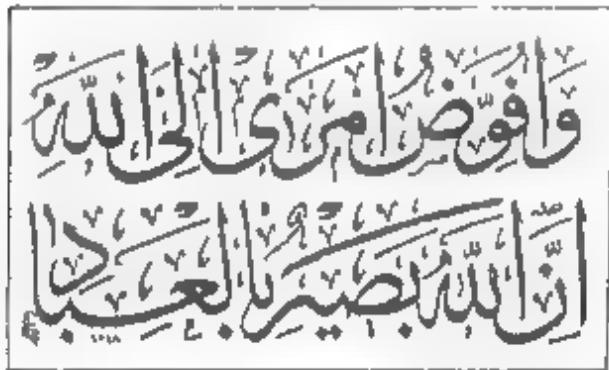 وَاُفَوِّضُ اَمْرِى اِلَى اللّٰهِ
اِنَّ اللّٰهَ بَصِيرٌ بِالْعِبَادِ